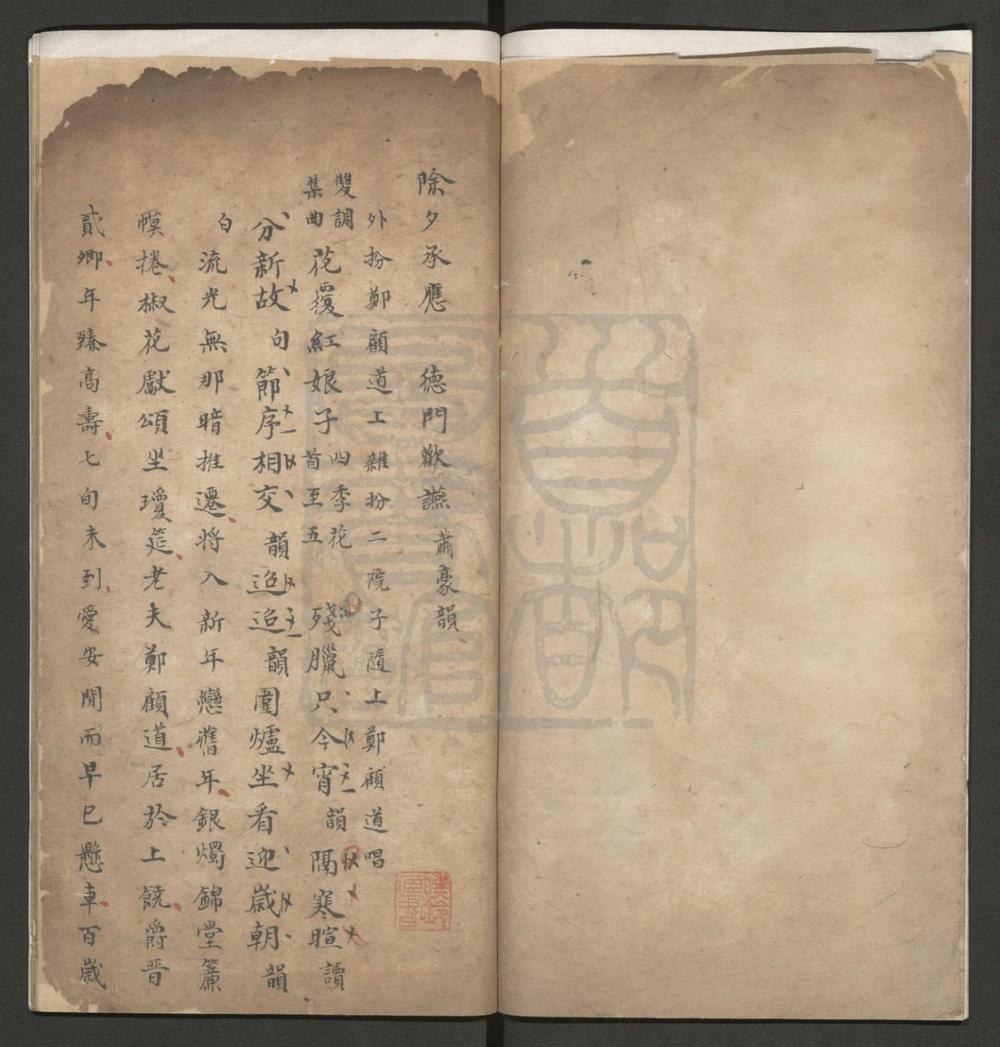 除夕承應　德門歡讌 蕭豪韻
外扮鄭顧道上雜扮二院子隨上鄭顧道唱
雙調集曲 花覆紅娘子 四季花首至五 殘臘只今宵韻隔寒暄讀
分新故句節序相交韻迢迢韻圍爐坐看迎歲朝韻
白 流光無那暗推遷將入新年戀舊年銀燭錦堂簾
幙捲椒花獻頌坐瓊筵老夫鄭顧道居於上饒爵晋
貳卿年臻高壽七旬未到愛安閒而早巳懸車百歲